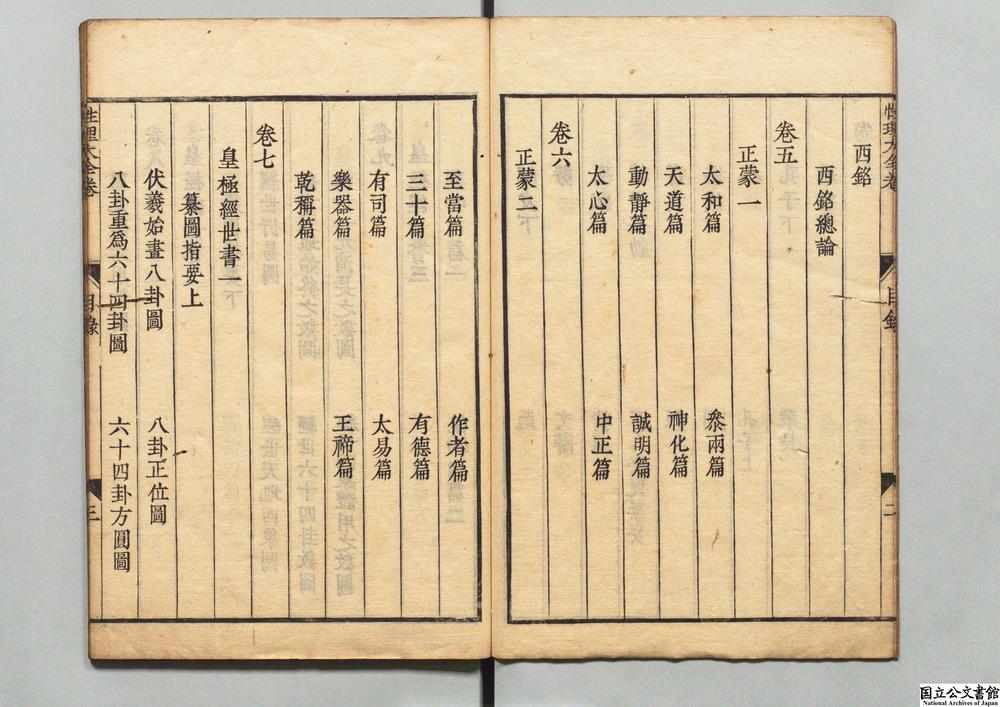 西銘
西銘總論
卷五
正蒙一
太和篇 參兩篇
天道篇 神化篇
動靜篇 誠明篇
太心篇 中正篇
卷六
正蒙二
目錄 二
至當篇 作者篇
三十篇 有德篇
有司篇 太易篇
樂器篇 王禘篇
乾稱篇
卷七
皇極經世書一
纂圖指要上
伏羲始畫八卦圖 八卦正位圖
八卦重爲六十四卦圖 六十四卦方圓圖
性理大全卷 目錄 三
国立公文書館
National Archives of Japan